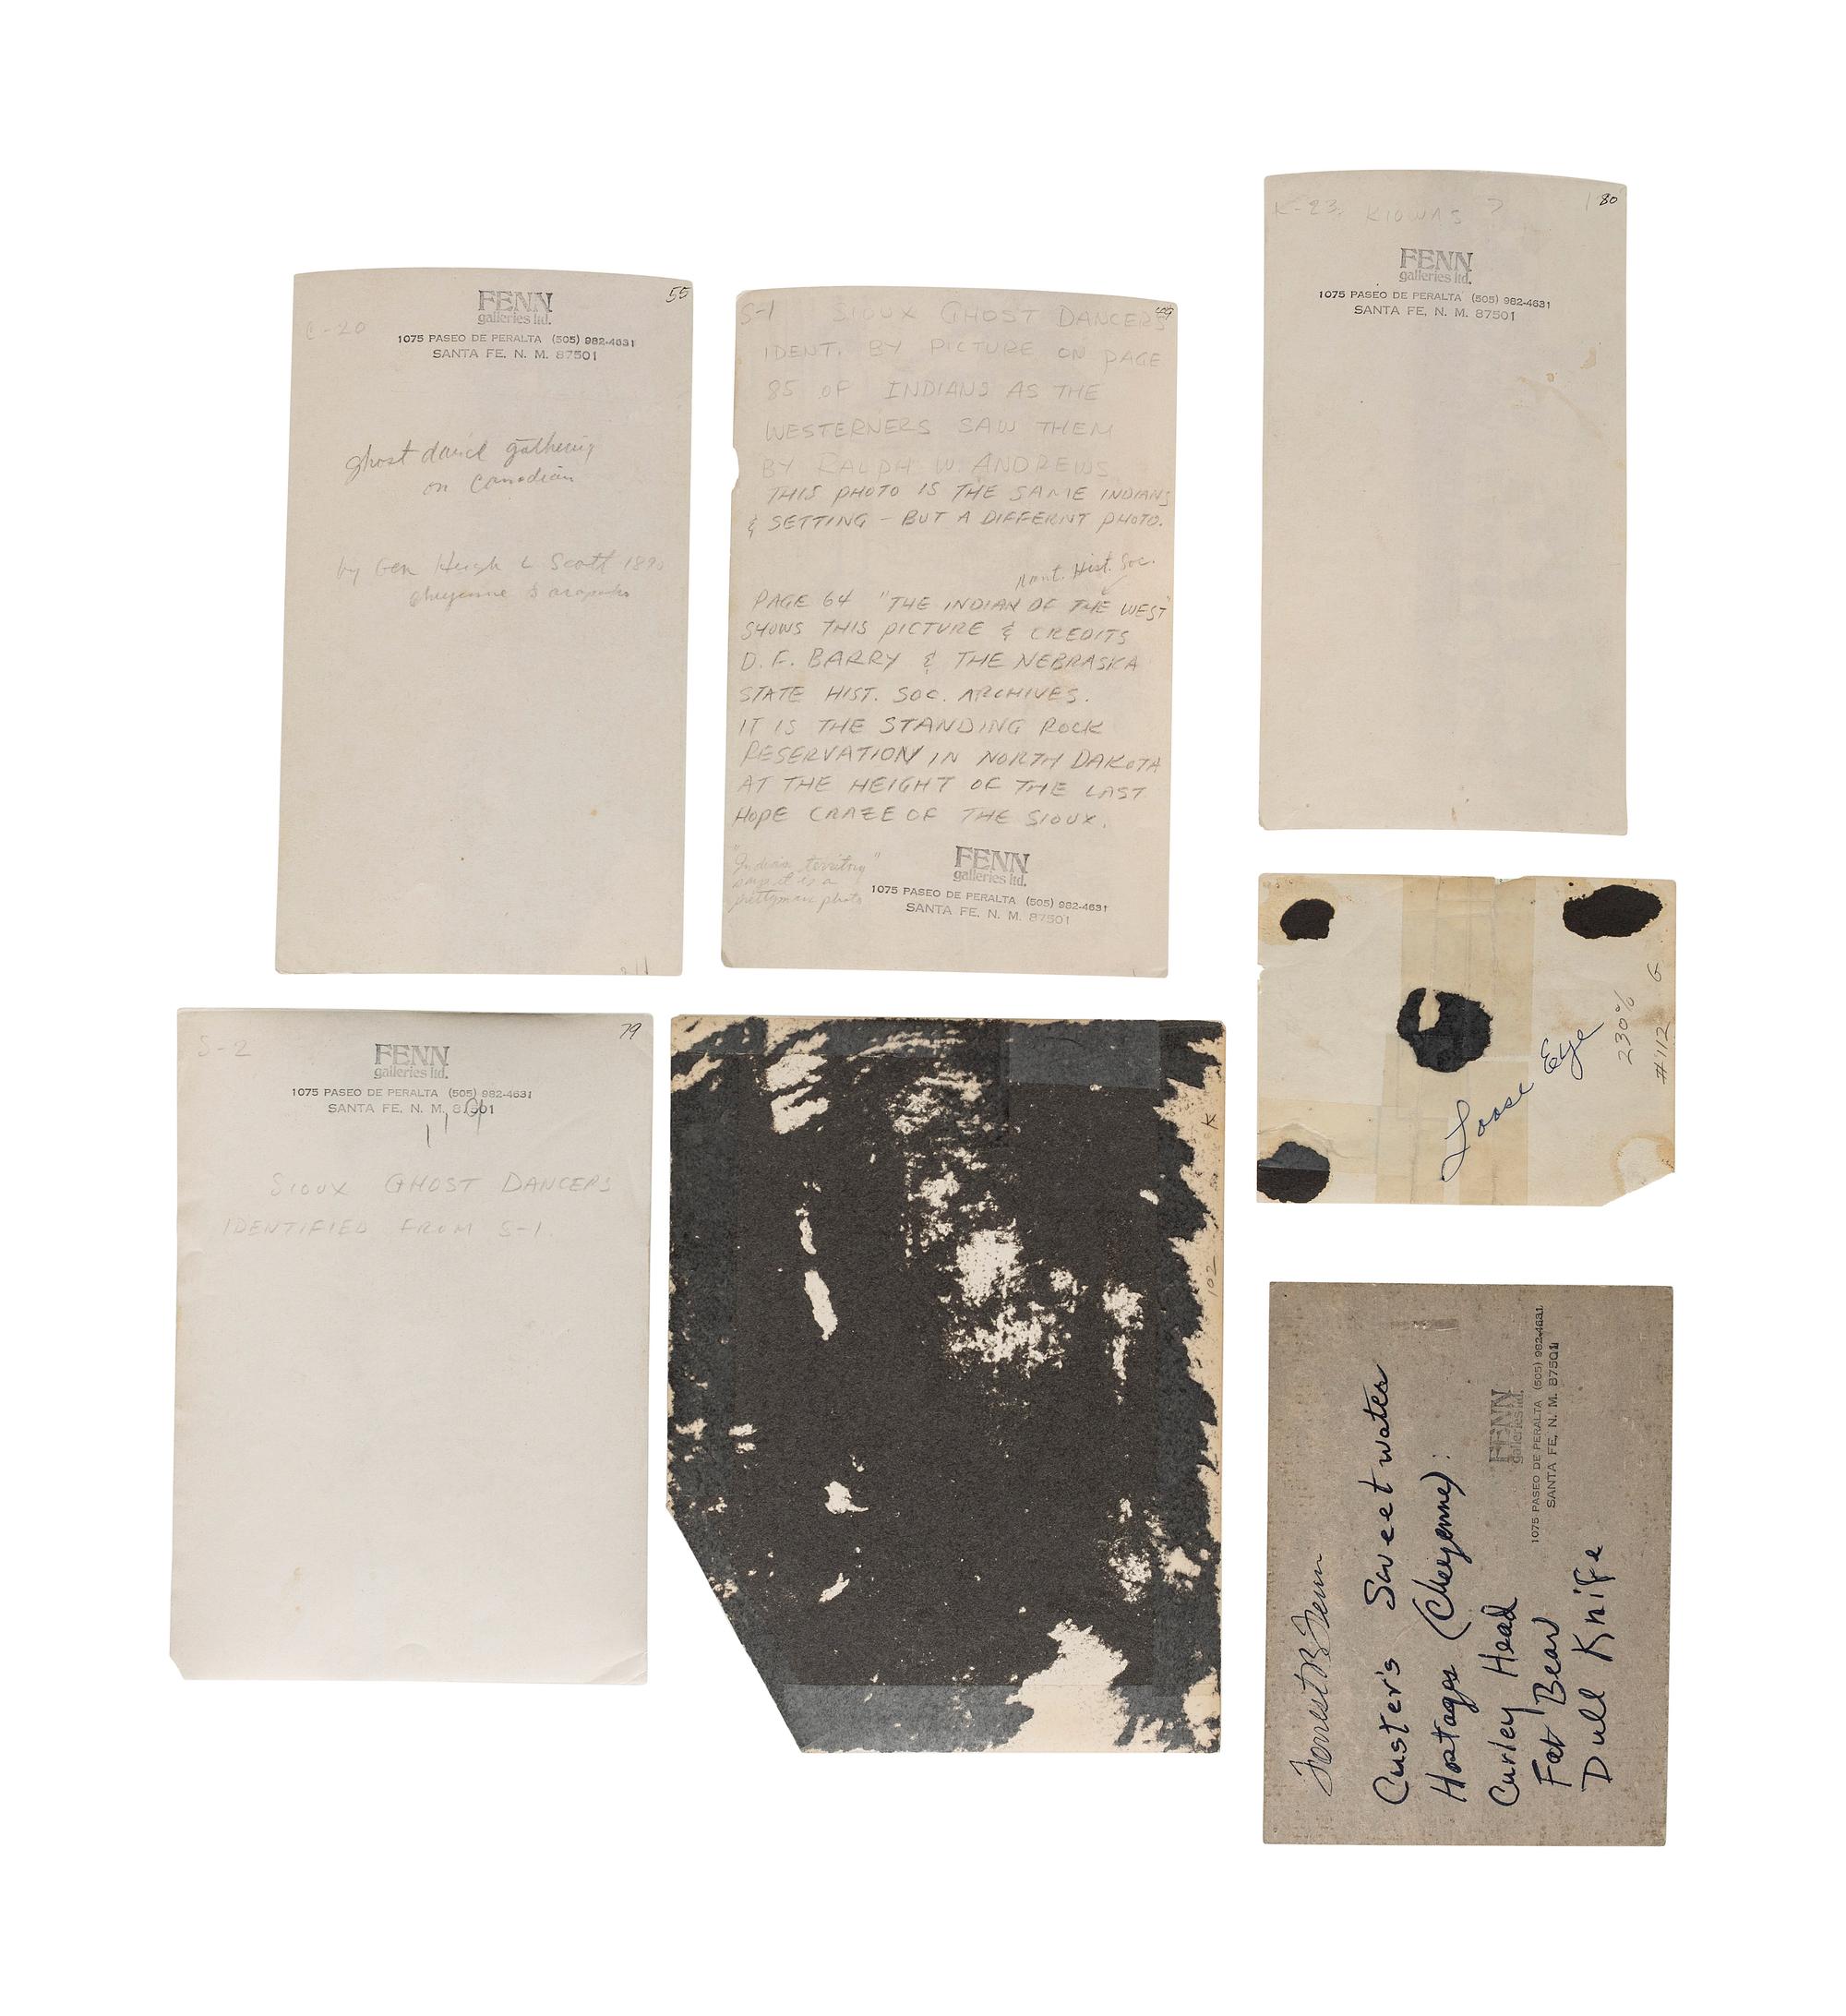 C-20
55
FENN
galleries ltd.
1075 PASEO DE PERALTA (505) 982-4631
SANTA FE, N. M. 87501
ghost dance gathering
on Canadian
by Gen Hugh L Scott 1890
Cheyenne & arapaho
S-1 SIOUX GHOST DANCERS
IDENT. BY PICTURE ON PAGE
85 OF INDIANS AS THE
WESTERNERS SAW THEM
BY RALPH W. ANDREWS
THIS PHOTO IS THE SAME INDIANS
& SETTING - BUT A DIFFERNT PHOTO.
Mont. Hist. Soc.
PAGE 64 "THE INDIAN OF THE WEST"
SHOWS THIS PICTURE & CREDITS
D. F. BARRY & THE NEBRASKA
STATE HIST. SOC. ARCHIVES.
IT IS THE STANDING ROCK
RESERVATION IN NORTH DAKOTA
AT THE HEIGHT OF THE LAST
HOPE CRAZE OF THE SIOUX.
"Indian territory"
says it is a
prettyman photo
FENN
galleries ltd.
1075 PASEO DE PERALTA (505) 982-4631
SANTA FE, N. M. 87501
K-23. KIOWAS ?
80
FENN
galleries ltd.
1075 PASEO DE PERALTA (505) 982-4631
SANTA FE, N. M. 87501
Loose Eye
230%
#112 G
S-2
79
FENN
galleries ltd.
1075 PASEO DE PERALTA (505) 982-4631
SANTA FE, N. M. 87501
SIOUX GHOST DANCERS
IDENTIFIED FROM S-1.
102 K
Forrest B Fenn
Custer's Sweetwater
Hostages (Cheyenne):
Curley Head
Fat Bear
Dull Knife
FENN
galleries ltd.
1075 PASEO DE PERALTA (505) 982-4631
SANTA FE, N. M. 87501